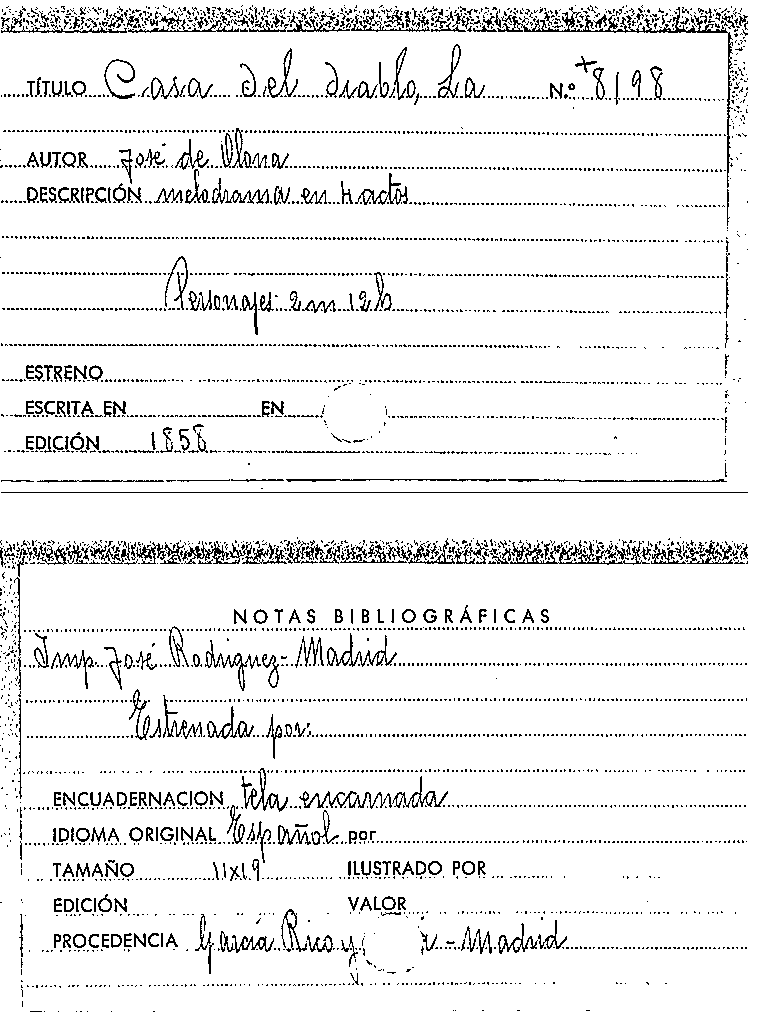 TÍTULO Casa del diablo, La N.º +8198
AUTOR José de Olona
DESCRIPCIÓN melodrama en 4 actos
Personajes: 2 m 12 h
ESTRENO
ESCRITA EN EN
EDICIÓN 1858
NOTAS BIBLIOGRÁFICAS
Imp. José Rodriguez - Madrid
Estrenada por:
ENCUADERNACION tela encarnada
IDIOMA ORIGINAL Español por
TAMAÑO 11x19 ILUSTRADO POR
EDICIÓN VALOR
PROCEDENCIA García Rico y - Madrid